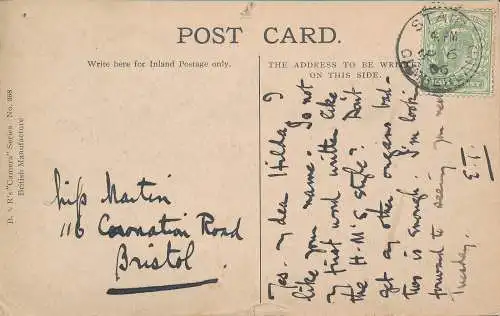 POST CARD.
Write here for Inland Postage only.
THE ADDRESS TO BE WRITTEN
ON THIS SIDE.
B. & R's "Camera" Series No. 368
British Manufacture
Miss Martin
116 Coronation Road
Bristol
Yes. my dear Hilda! I
like your name. Is not
my first word written like
the H-M'S style? Don't
get any other organs bad-
two is enough. I'm look-
forward to seeing you next
Tuesday.
E.T.